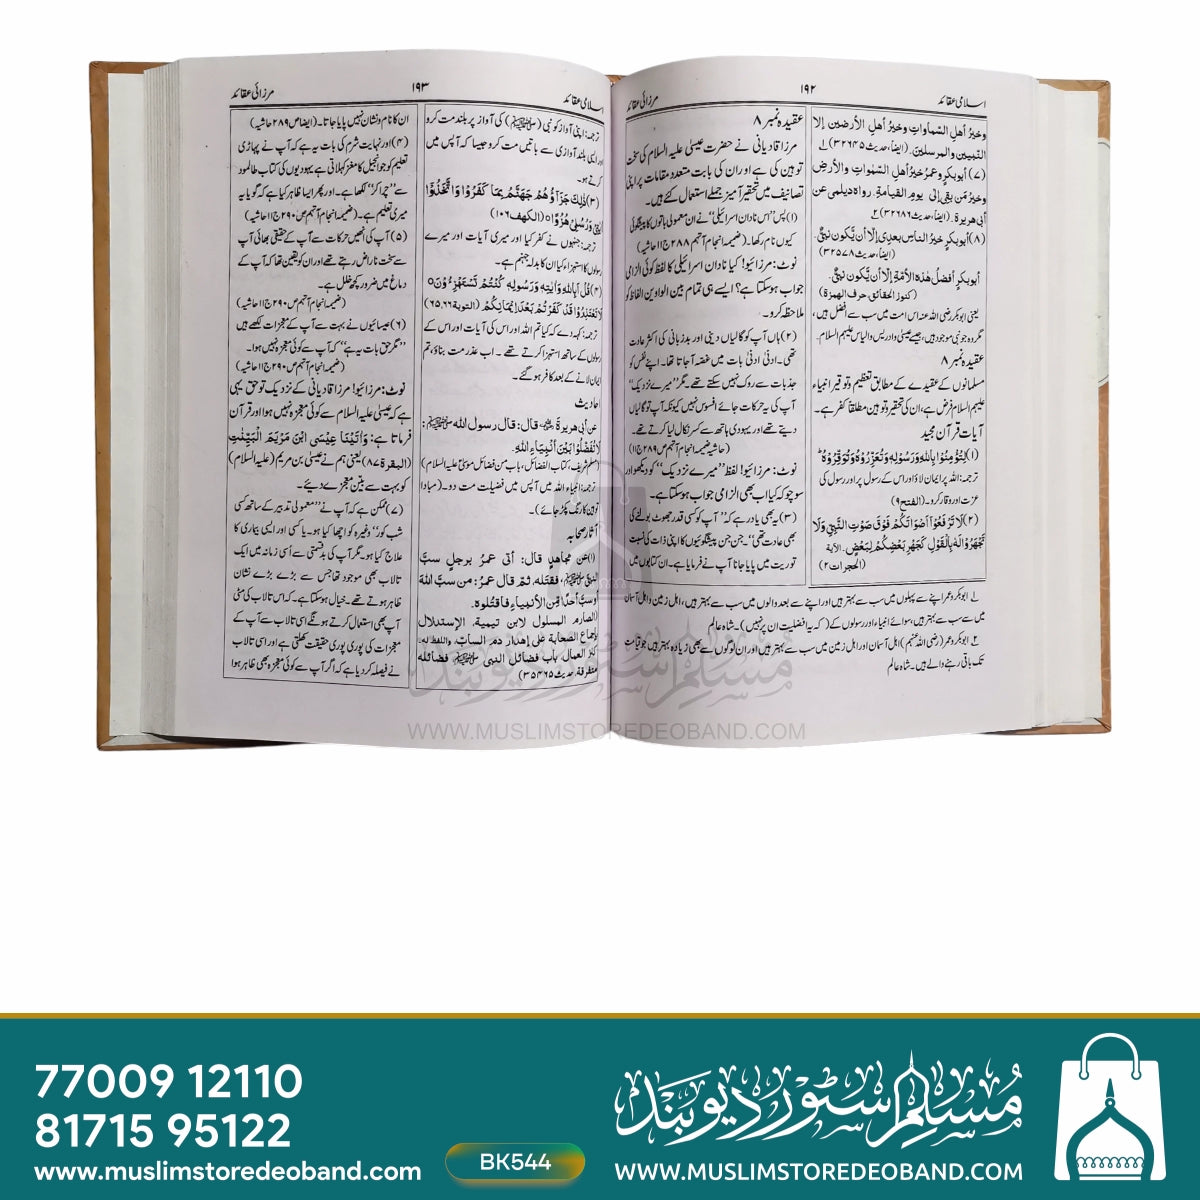 اسلامی عقائد
۱۹۲
مرزائی عقائد
وخیرُ أھلِ السَّماواتِ وخیرُ أھلِ الأرضینَ إلا
النبیینَ والمرسلینَ۔ (ایضاً، حدیث ۳۲۶۴۵) ۱
(۷) أبوبکرٍ وعمرُ خیرُ أھلِ السَّمٰواتِ والأرضِ
وخیرُ مَن بقِیَ إلی یومِ القیامۃِ۔ رواہ دیلمی عن
أبی ھریرۃ۔ (ایضاً، حدیث ۳۲۶۸۶) ۲
(۸) أبوبکرٍ خیرُ الناسِ بعدی إلا أن یَّکون نبیٌّ۔
(ایضاً، حدیث ۳۲۵۷۸)
أبوبکرٍ أفضلُ ھٰذہ الأمۃِ إلا أن یَّکون نبیٌّ۔
(کنوز الحقائق، حرف الھمزۃ)
یعنی ابوبکر رضی اللہ عنہ اس امت میں سب سے افضل ہیں،
مگر وہ جو نبی موجود ہیں، جیسے عیسیٰ وادریس والیاس علیہم السلام
عقیدہ نمبر ۸
مسلمانوں کے عقیدے کے مطابق تعظیم وتوقیر انبیاء
علیہم السلام فرض ہے، ان کی تحقیر وتوہین مطلقاً کفر ہے۔
آیات قرآن مجید
(۱) لِتُؤْمِنُوْا بِاللّٰہِ وَرَسُوْلِہٖ وَتُعَزِّرُوْہُ وَتُوَقِّرُوْہُ
ترجمہ: اللہ پر ایمان لاؤ اور اس کے رسول پر اور رسول کی
عزت اور وقار کرو۔ (الفتح ۹)
(۲) لَا تَرْفَعُوْٓا اَصْوَاتَکُمْ فَوْقَ صَوْتِ النَّبِیِّ وَلَا
تَجْھَرُوْا لَہٗ بِالْقَوْلِ کَجَھْرِ بَعْضِکُمْ لِبَعْضٍ۔ الآیۃ
(الحجرات ۲)
عقیدہ نمبر ۸
مرزا قادیانی نے حضرت عیسیٰ علیہ السلام کی سخت
توہین کی ہے اور ان کی بابت متعدد مقامات پر اپنی
تصانیف میں تحقیر آمیز جملے استعمال کئے ہیں۔
(۱) پس ”اس نادان اسرائیلی“ نے ان معمولی باتوں کا پیشگوئی
کیوں نام رکھا۔ (ضمیمہ انجام آتھم ۲۸۸ ج۱۱ حاشیہ)
نوٹ: مرزائیو! کیا نادان اسرائیلی کا لفظ کوئی الزامی
جواب ہوسکتا ہے؟ ایسے ہی تمام بین الواوین الفاظ کو
ملاحظہ کرو۔
(۲) ہاں آپ کو گالیاں دینی اور بدزبانی کی اکثر عادت
تھی۔ ادنیٰ ادنیٰ بات میں غصہ آجاتا تھا۔ اپنے نفس کو
جذبات سے روک نہیں سکتے تھے۔ مگر ”میرے نزدیک“
آپ کی یہ حرکات جائے افسوس نہیں کیونکہ آپ تو گالیاں
دیتے تھے اور یہودی ہاتھ سے کسر نکال لیا کرتے تھے۔
(حاشیہ ضمیمہ انجام آتھم ص ۲۸۹ ج۱۱)
نوٹ: مرزائیو! لفظ ”میرے نزدیک“ کو دیکھو اور
سوچو کہ کیا اب بھی الزامی جواب ہوسکتا ہے۔
(۳) یہ بھی یاد رہے کہ ”آپ کو کسی قدر جھوٹ بولنے کی
بھی عادت تھی“۔ جن جن پیشگوئیوں کا اپنی ذات کی نسبت
توریت میں پایا جانا آپ نے فرمایا ہے۔ ان کتابوں میں
۱۔ ابوبکر وعمر اپنے سے پہلوں میں سب سے بہتر ہیں اور اپنے سے بعد والوں میں سب سے بہتر ہیں، اہل زمین واہل آسمان
میں سب سے بہتر ہیں، سوائے انبیاء اور رسولوں کے (کہ یہ افضلیت ان پر نہیں)۔ شاہ عالم
۲۔ ابوبکر وعمر (رضی اللہ عنہم) اہل آسمان اور اہل زمین میں سب سے بہتر ہیں اور ان لوگوں سے بھی زیادہ بہتر ہیں جو قیامت
تک باقی رہنے والے ہیں۔ شاہ عالم
اسلامی عقائد
۱۹۳
مرزائی عقائد
ترجمہ: اپنی آواز کو نبی (ﷺ) کی آواز پر بلند مت کرو
اور ایسی بلند آوازی سے باتیں مت کرو جیسا کہ آپس میں
کرتے ہو۔
(۳) ذٰلِکَ جَزَآؤُھُمْ جَھَنَّمُ بِمَا کَفَرُوْا وَاتَّخَذُوْٓا
اٰیٰتِیْ وَرُسُلِیْ ھُزُوًا (الکھف ۱۰۶)
ترجمہ: جنہوں نے کفر کیا اور میری آیات اور میرے
رسولوں کا استہزاء کیا ان کا بدلہ جہنم ہے۔
(۴) قُلْ اَبِاللّٰہِ وَاٰیٰتِہٖ وَرَسُوْلِہٖ کُنْتُمْ تَسْتَھْزِءُوْنَ
لَا تَعْتَذِرُوْا قَدْ کَفَرْتُمْ بَعْدَ اِیْمَانِکُمْ (التوبۃ ۶۵،۶۶)
ترجمہ: کہہ دے کہ کیا تم اللہ اور اس کی آیات اور اس کے
رسولوں کے ساتھ استہزا کرتے تھے۔ اب عذر مت بناؤ، تم
ایمان لانے کے بعد کافر ہوگئے۔
احادیث
عن أبی ھریرۃ قال: قال رسول اللہ ﷺ:
لَا تُفَضِّلُوْا بَیْنَ أَنْبِیَاءِ اللّٰہِ۔
(مسلم شریف، کتاب الفضائل، باب من فضائل موسیٰ علیہ السلام)
ترجمہ: انبیاء اللہ میں آپس میں فضیلت مت دو۔ (مبادا
توہین کا رنگ پکڑ جائے)۔
آثار صحابہ
(۱) عن مجاھدٍ قال: أتی عمرُ برجلٍ سبَّ
النبی ﷺ، فقتلہ، ثم قال عمرُ: من سبَّ اللہَ
وسبَّ أحدًا مِن الأنبیاءِ فاقتلوہ۔
(الصارم المسلول لابن تیمیۃ، الإستدلال
بإجماع الصحابۃ علی إھدار دم الساب، واللفظ لہ۔
کنز العمال باب فضائل النبی ﷺ فضائلہ
متفرقۃ، حدیث ۳۵۴۶۵)
ان کا نام ونشان نہیں پایا جاتا۔ (ایضاً ص ۲۸۹ حاشیہ)
(۴) اور نہایت شرم کی بات یہ ہے کہ آپ نے پہاڑی
تعلیم کو جو انجیل کا مغز کہلاتی ہے یہودیوں کی کتاب طالمود
سے ”چرا کر“ لکھا ہے۔ اور پھر ایسا ظاہر کیا ہے کہ گویا یہ
میری تعلیم ہے۔ (ضمیمہ انجام آتھم ص ۲۹۰ ج۱۱ حاشیہ)
(۵) آپ کی انھیں حرکات سے آپ کے حقیقی بھائی آپ
سے سخت ناراض رہتے تھے اور ان کو یقین تھا کہ آپ کے
دماغ میں ضرور کچھ خلل ہے۔
(ضمیمہ انجام آتھم ص ۲۹۰ ج۱۱ حاشیہ)
(۶) عیسائیوں نے بہت سے آپ کے معجزات لکھے ہیں
”مگر حق بات یہ ہے“ کہ آپ سے کوئی معجزہ نہیں ہوا۔
(ضمیمہ انجام آتھم ص ۲۹۰ ج۱۱ حاشیہ)
نوٹ: مرزائیو! مرزا قادیانی کے نزدیک تو حق یہی
ہے کہ عیسیٰ علیہ السلام سے کوئی معجزہ نہیں ہوا اور قرآن
فرماتا ہے: وَاٰتَیْنَا عِیْسَی ابْنَ مَرْیَمَ الْبَیِّنٰتِ
(البقرۃ ۸۷) یعنی ہم نے عیسیٰ بن مریم (علیہ السلام)
کو بہت سے بیّن معجزے دیئے۔
(۷) ممکن ہے کہ آپ نے ”معمولی تدبیر کے ساتھ کسی
شب کور“ وغیرہ کو اچھا کیا ہو۔ یا کسی اور ایسی بیماری کا
علاج کیا ہو۔ مگر آپ کی بدقسمتی سے اُسی زمانہ میں ایک
تالاب بھی موجود تھا جس سے بڑے بڑے نشان
ظاہر ہوتے تھے۔ خیال ہوسکتا ہے۔ کہ اس تالاب کی مٹی
آپ بھی استعمال کرتے ہونگے اسی تالاب سے آپ کے
معجزات کی پوری پوری حقیقت کھلتی ہے اور اسی تالاب
نے فیصلہ کردیا ہے کہ اگر آپ سے کوئی معجزہ بھی ظاہر ہوا
مسلم سٹور دیوبند
WWW.MUSLIMSTOREDEOBAND.COM
77009 12110
81715 95122
www.muslimstoredeoband.com
BK544
مسلم سٹور دیوبند
WWW.MUSLIMSTOREDEOBAND.COM